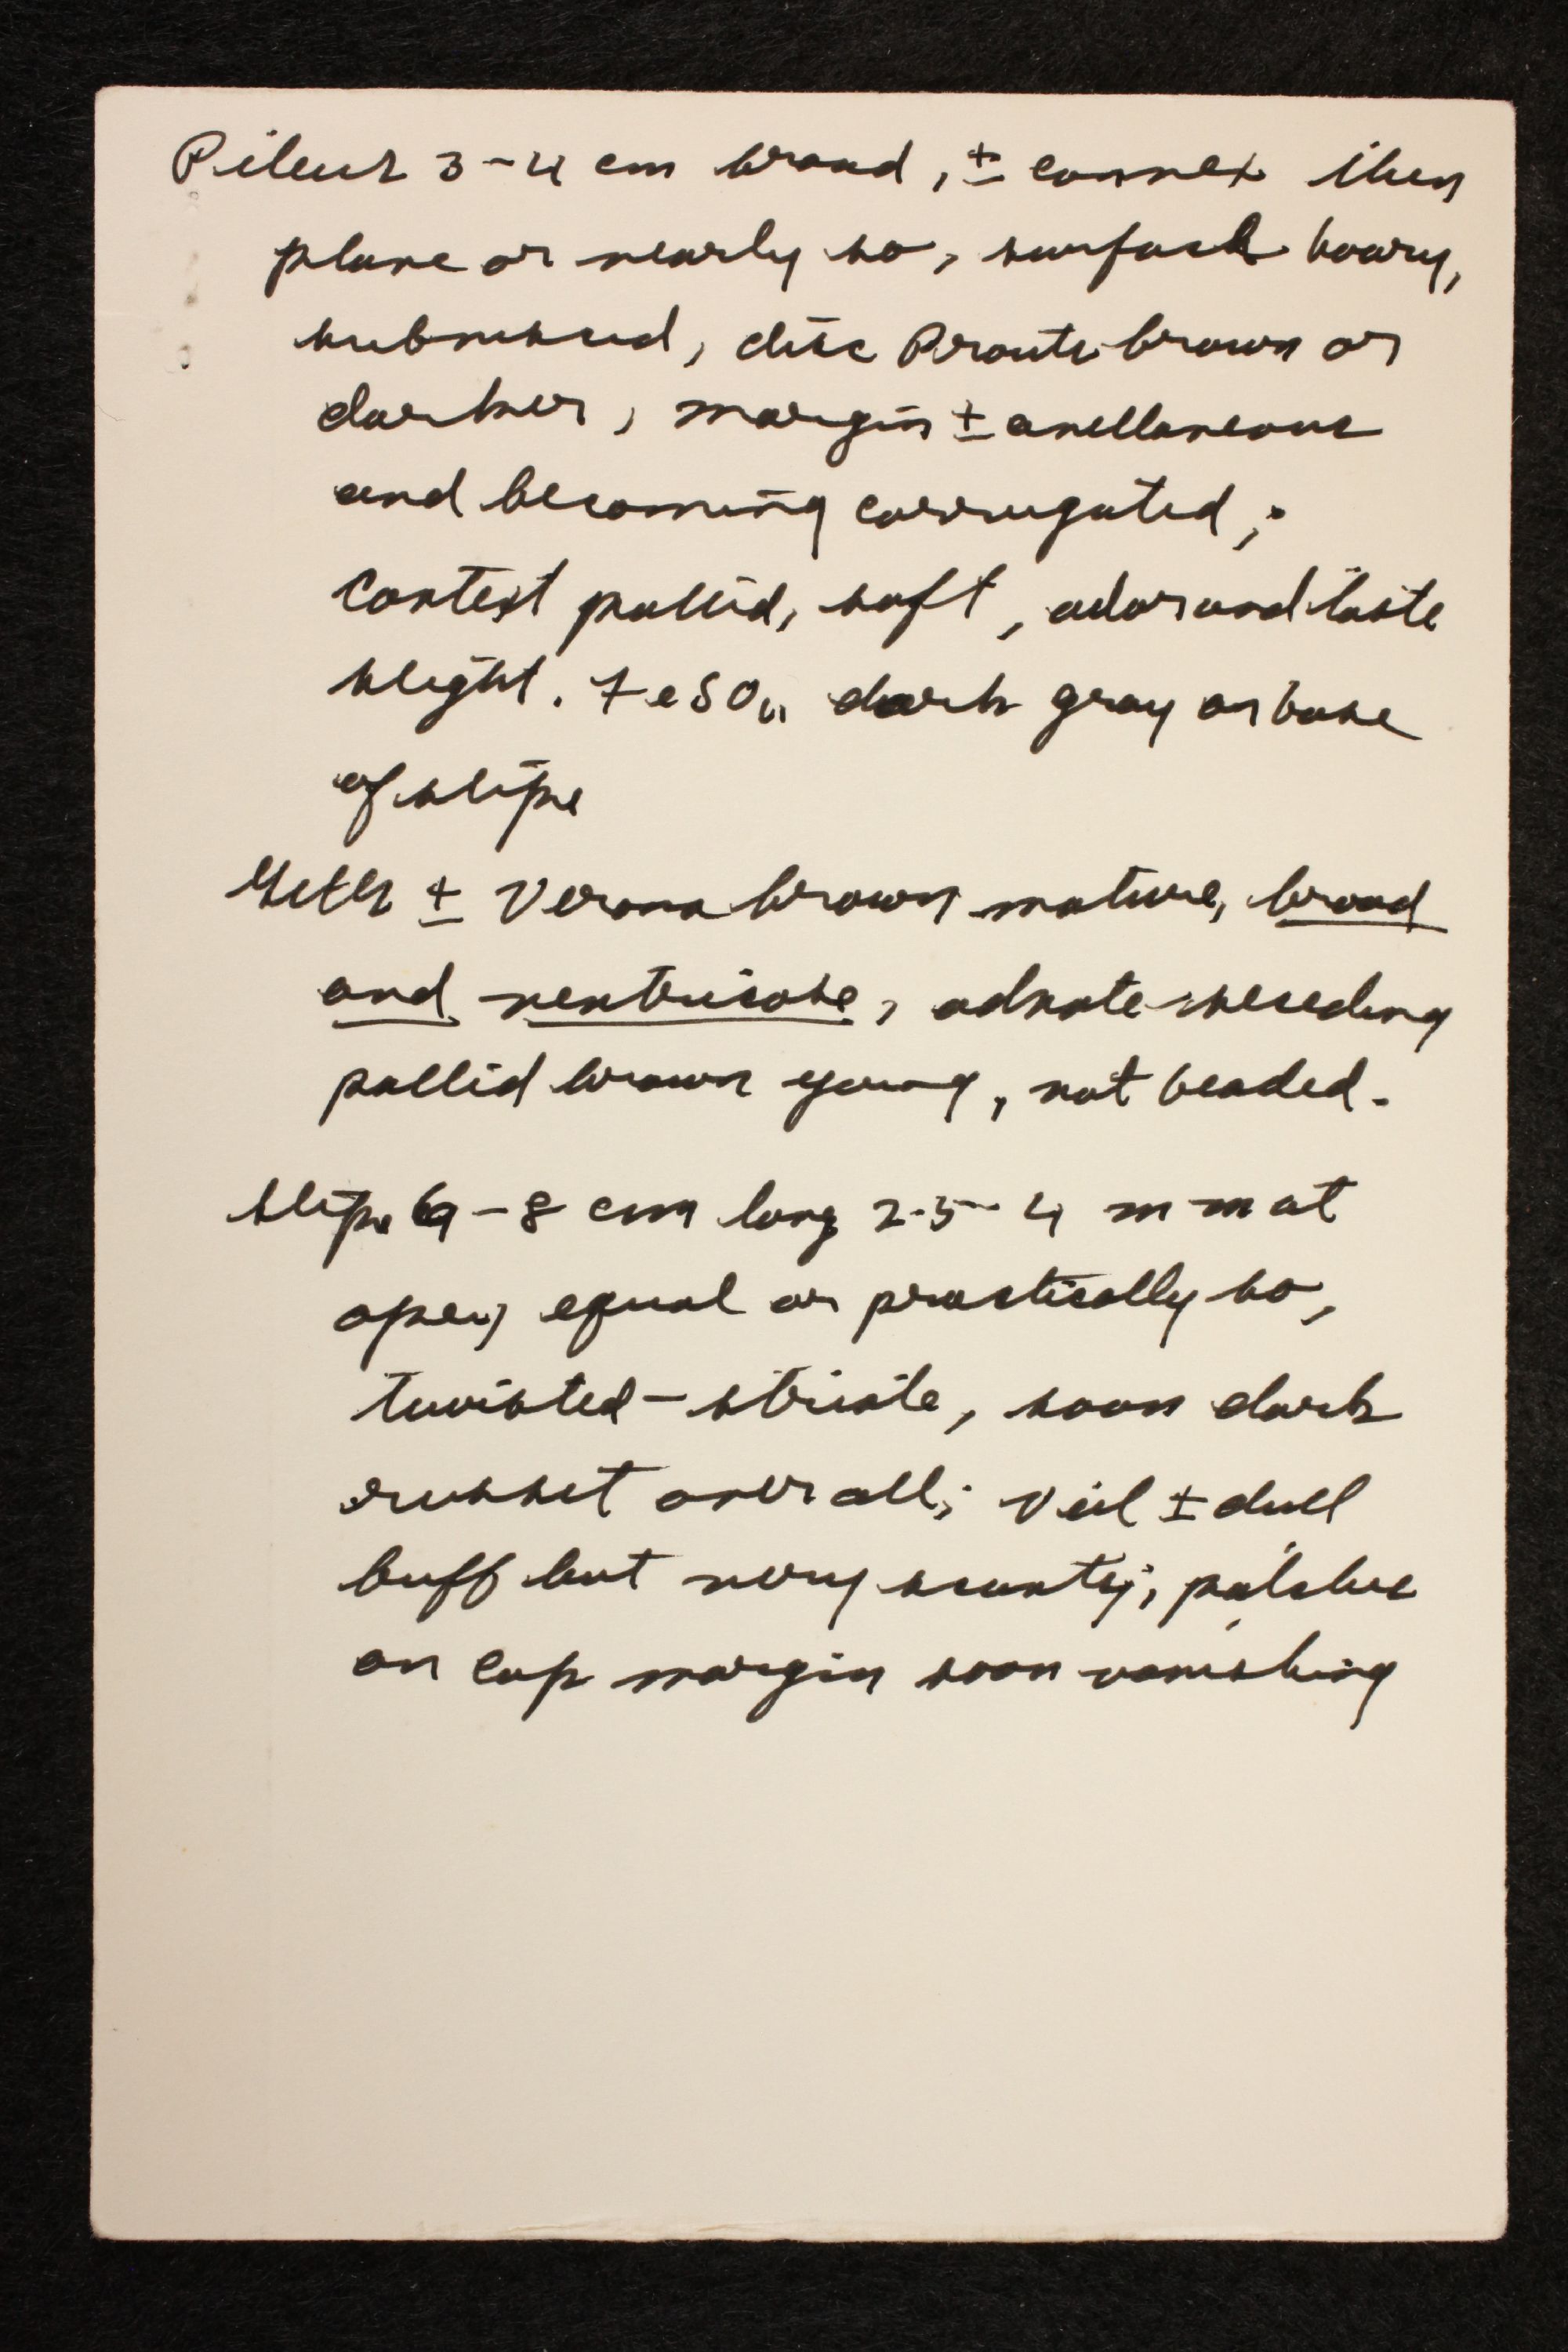 Pileus 3-4 cm broad, ± convex then
plane or nearly so, surface hoary,
subviscid, disc Prouts brown or
darker, margin ± avellaneous
and becoming corrugated;
Context pallid, soft, odor and taste
slight. FeSO4 dark gray on base
of stipe
Gills ± Verona brown mature, broad
and ventricose, adnate-seceding
pallid brown young, not beaded.
Stipe 6-8 cm long 2.5-4 mm at
apex, equal or practically so,
twisted-striate, soon dark
russet over all; veil ± dull
buff but very scanty; patches
on cap margin soon vanishing